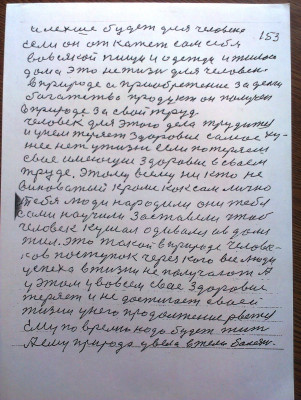 153
и легше будет для человека
если он откажет сам себя
во всякой пищи и одежда и жилого
дома Это не жизни для человека
в природе а приобретение за деньги
богатство продукт он получает
в природе за свой труд.
Человек для этого дела трудится
и у нем теряет здоровие самое ху-
нее нет у жизни если потеряем
свое имеющие здоровие в своем
труде, Этому всему ни кто не
виноватый кроме как сам лично
тебя люди народили они тебя
сами научили заставели чтоб
человек кушал одивался и в доме
жил. Это такой в природе челове-
ков поступок через кого все люди
успеха в жизни не получают А
у этом у во всем свое здоровие
теряет и не достигает своей
жизни у него продолжение
Ему по времю надо будет жить
А ему природа увела в тело